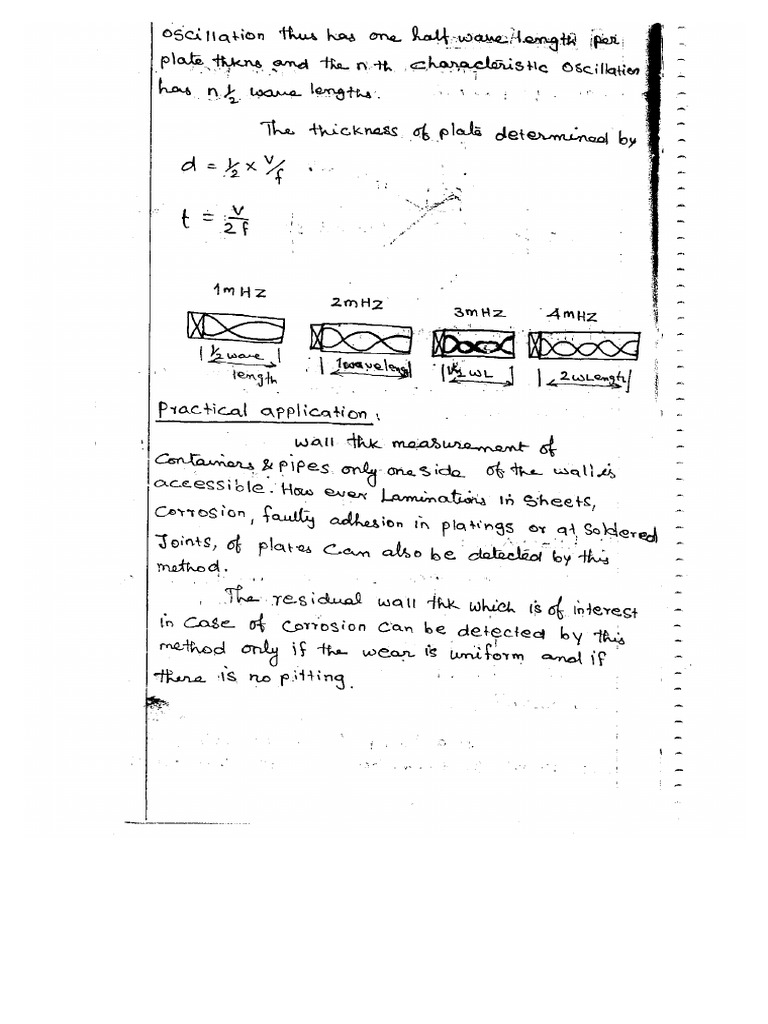 oscillation thus has one half wave length per
plate thkns and the nth characteristic oscillation
has n ½ wave lengths.
The thickness of plate determined by
d = ½ × v/f .
t = v/2f
1mHZ 2mHZ 3mHZ 4mHZ
½ wave length 1 wave leng 1½ WL 2 wLength
Practical application.
wall thk measurement of
Containers & pipes only one side of the wall is
accessible. How ever Laminations in sheets,
Corrosion, faulty adhesion in platings or at soldered
Joints, of plates can also be detected by this
method.
The residual wall thk which is of interest
in case of corrosion can be detected by this
method only if the wear is uniform and if
there is no pitting.